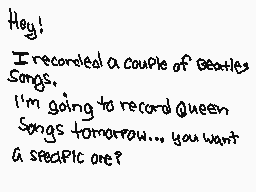 Hey!
I recorded a couple of Beatles
songs.
I'm going to record Queen
songs tomorrow... you want
a specific one?